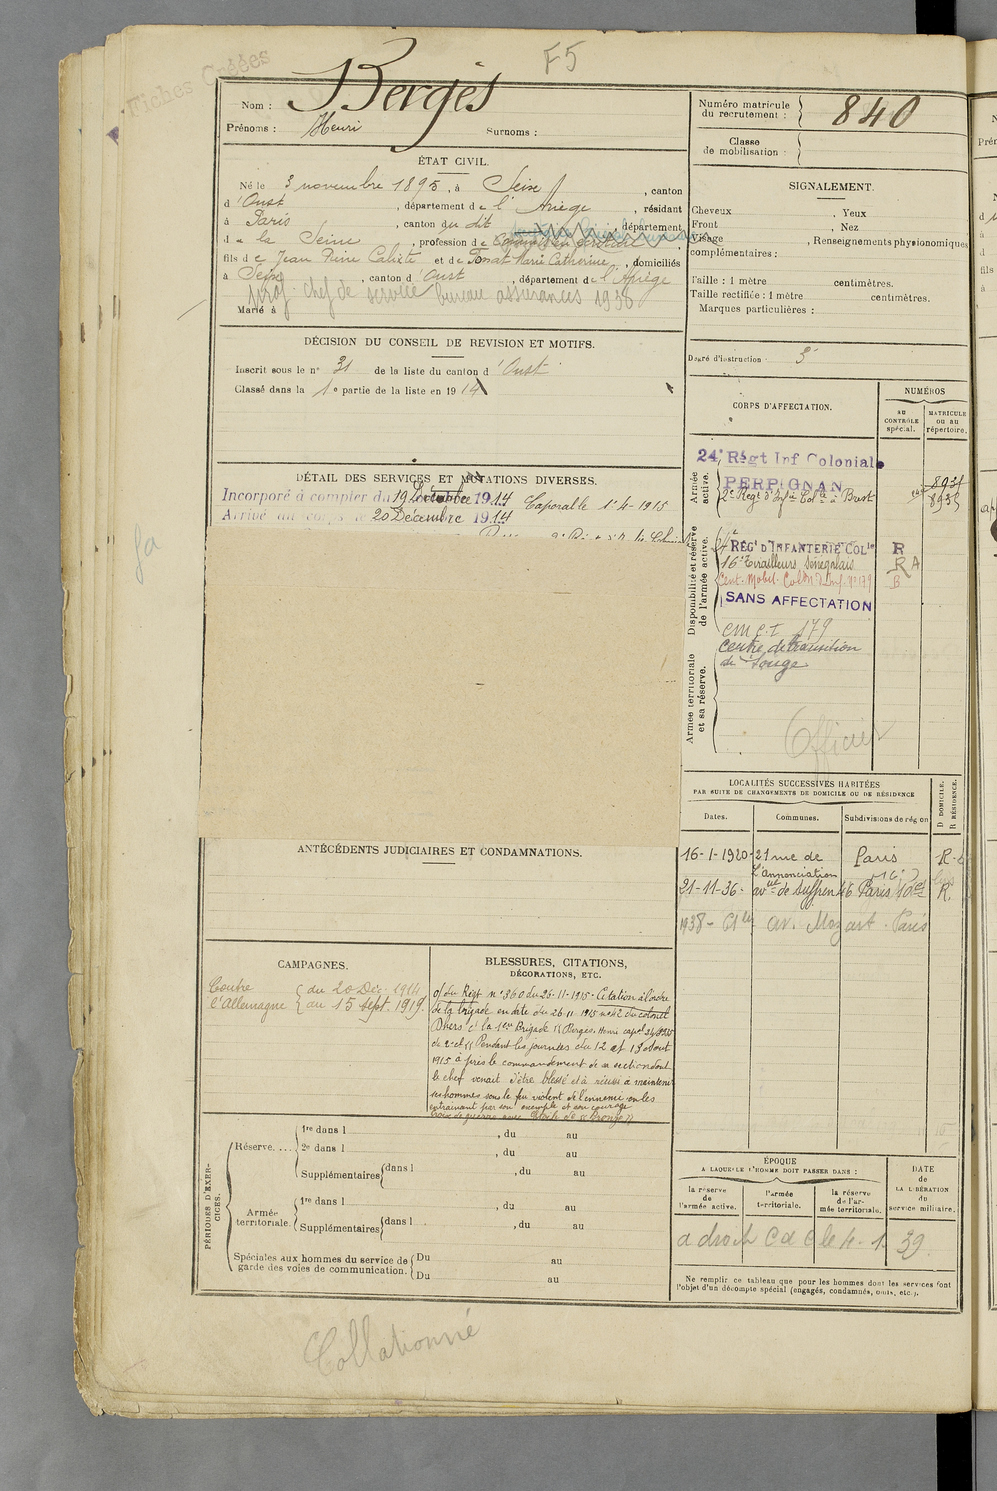 Fiches Créées
F5
Nom : Bergès
Prénoms : Henri Surnoms :
ÉTAT CIVIL.
Né le 3 novembre 1895, à Seix, canton
d'Oust, département de l'Ariège, résidant
à Paris, canton du dit, département
d e la Seine, profession de
fils de Jean Pierre Céleste et de Marie Catherine, domiciliés
à Seix, canton d'Oust, département de l'Ariège
prof. chef de service bureau assurances 1938
Marié à
DÉCISION DU CONSEIL DE REVISION ET MOTIFS.
Inscrit sous le n° 31 de la liste du canton d'Oust
Classé dans la 1e partie de la liste en 1914
DÉTAIL DES SERVICES ET MUTATIONS DIVERSES.
Incorporé à compter du 19 Décembre 1914 Caporal le 1-4-1915
Arrivé au corps le 20 Décembre 1914
ANTÉCÉDENTS JUDICIAIRES ET CONDAMNATIONS.
CAMPAGNES.
Contre { du 20 Déc. 1914
l'Allemagne { au 15 sept. 1919
BLESSURES, CITATIONS,
DÉCORATIONS, ETC.
o/ du Régt n° 360 du 26-11-1915 - Citation à l'ordre
de la brigade en date du 26 11 1915 n° 42 du colonel
de 2e cl "Pendant les journées du 12 et 13 août
1915 a pris le commandement de sa section dont
le chef venait d'être blessé et a réussi à maintenir
ses hommes sous le feu violent de l'ennemi en les
entrainant par son exemple et son courage
Croix de guerre avec étoile de bronze
PÉRIODES D'EXERCICES.
Réserve....
1re dans l , du au
2e dans l , du au
Supplémentaires { dans l , du au
Armée territoriale.
1re dans l , du au
Supplémentaires { dans l , du au
Spéciales aux hommes du service de { Du au
garde des voies de communication. { Du au
Collationné
Numéro matricule
du recrutement : 840
Classe
de mobilisation :
SIGNALEMENT.
Cheveux , Yeux
Front , Nez
Visage , Renseignements physionomiques
complémentaires :
Taille : 1 mètre centimètres.
Taille rectifiée : 1 mètre centimètres.
Marques particulières :
Degré d'instruction : 3
CORPS D'AFFECTATION.
NUMÉROS
AU CONTRÔLE spécial.
MATRICULE OU AU répertoire.
Armée active.
24e Régt Inf Coloniale
PERPIGNAN
2e Régt d'Infie Colle à Brest
8931
8935
Disponibilité et réserve de l'armée active.
RÉGt D'INFANTERIE COLle R
16e Tirailleurs Sénégalais R A
Cent. Mobil. Col. d'Inf. N° 179 B
SANS AFFECTATION
Armée territoriale et sa réserve.
CMCI 179
Centre de transition
de Souge
Officier
LOCALITÉS SUCCESSIVES HABITÉES
PAR SUITE DE CHANGEMENTS DE DOMICILE OU DE RÉSIDENCE
D. DOMICILE. R. RÉSIDENCE.
Dates. Communes. Subdivisions de région
16-1-1920 21 rue de Paris R
l'annonciation (16e)
21-11-36 avue de Suffren 46 Paris R.
1938 - 61 av. Mozart. Paris
ÉPOQUE
A LAQUELLE L'HOMME DOIT PASSER DANS :
la réserve de l'armée active.
l'armée territoriale.
la réserve de l'armée territoriale.
DATE de LA LIBÉRATION du service militaire.
a droit Cd C le 4-1-39
Ne remplir ce tableau que pour les hommes dont les services font
l'objet d'un décompte spécial (engagés, condamnés, omis, etc.).